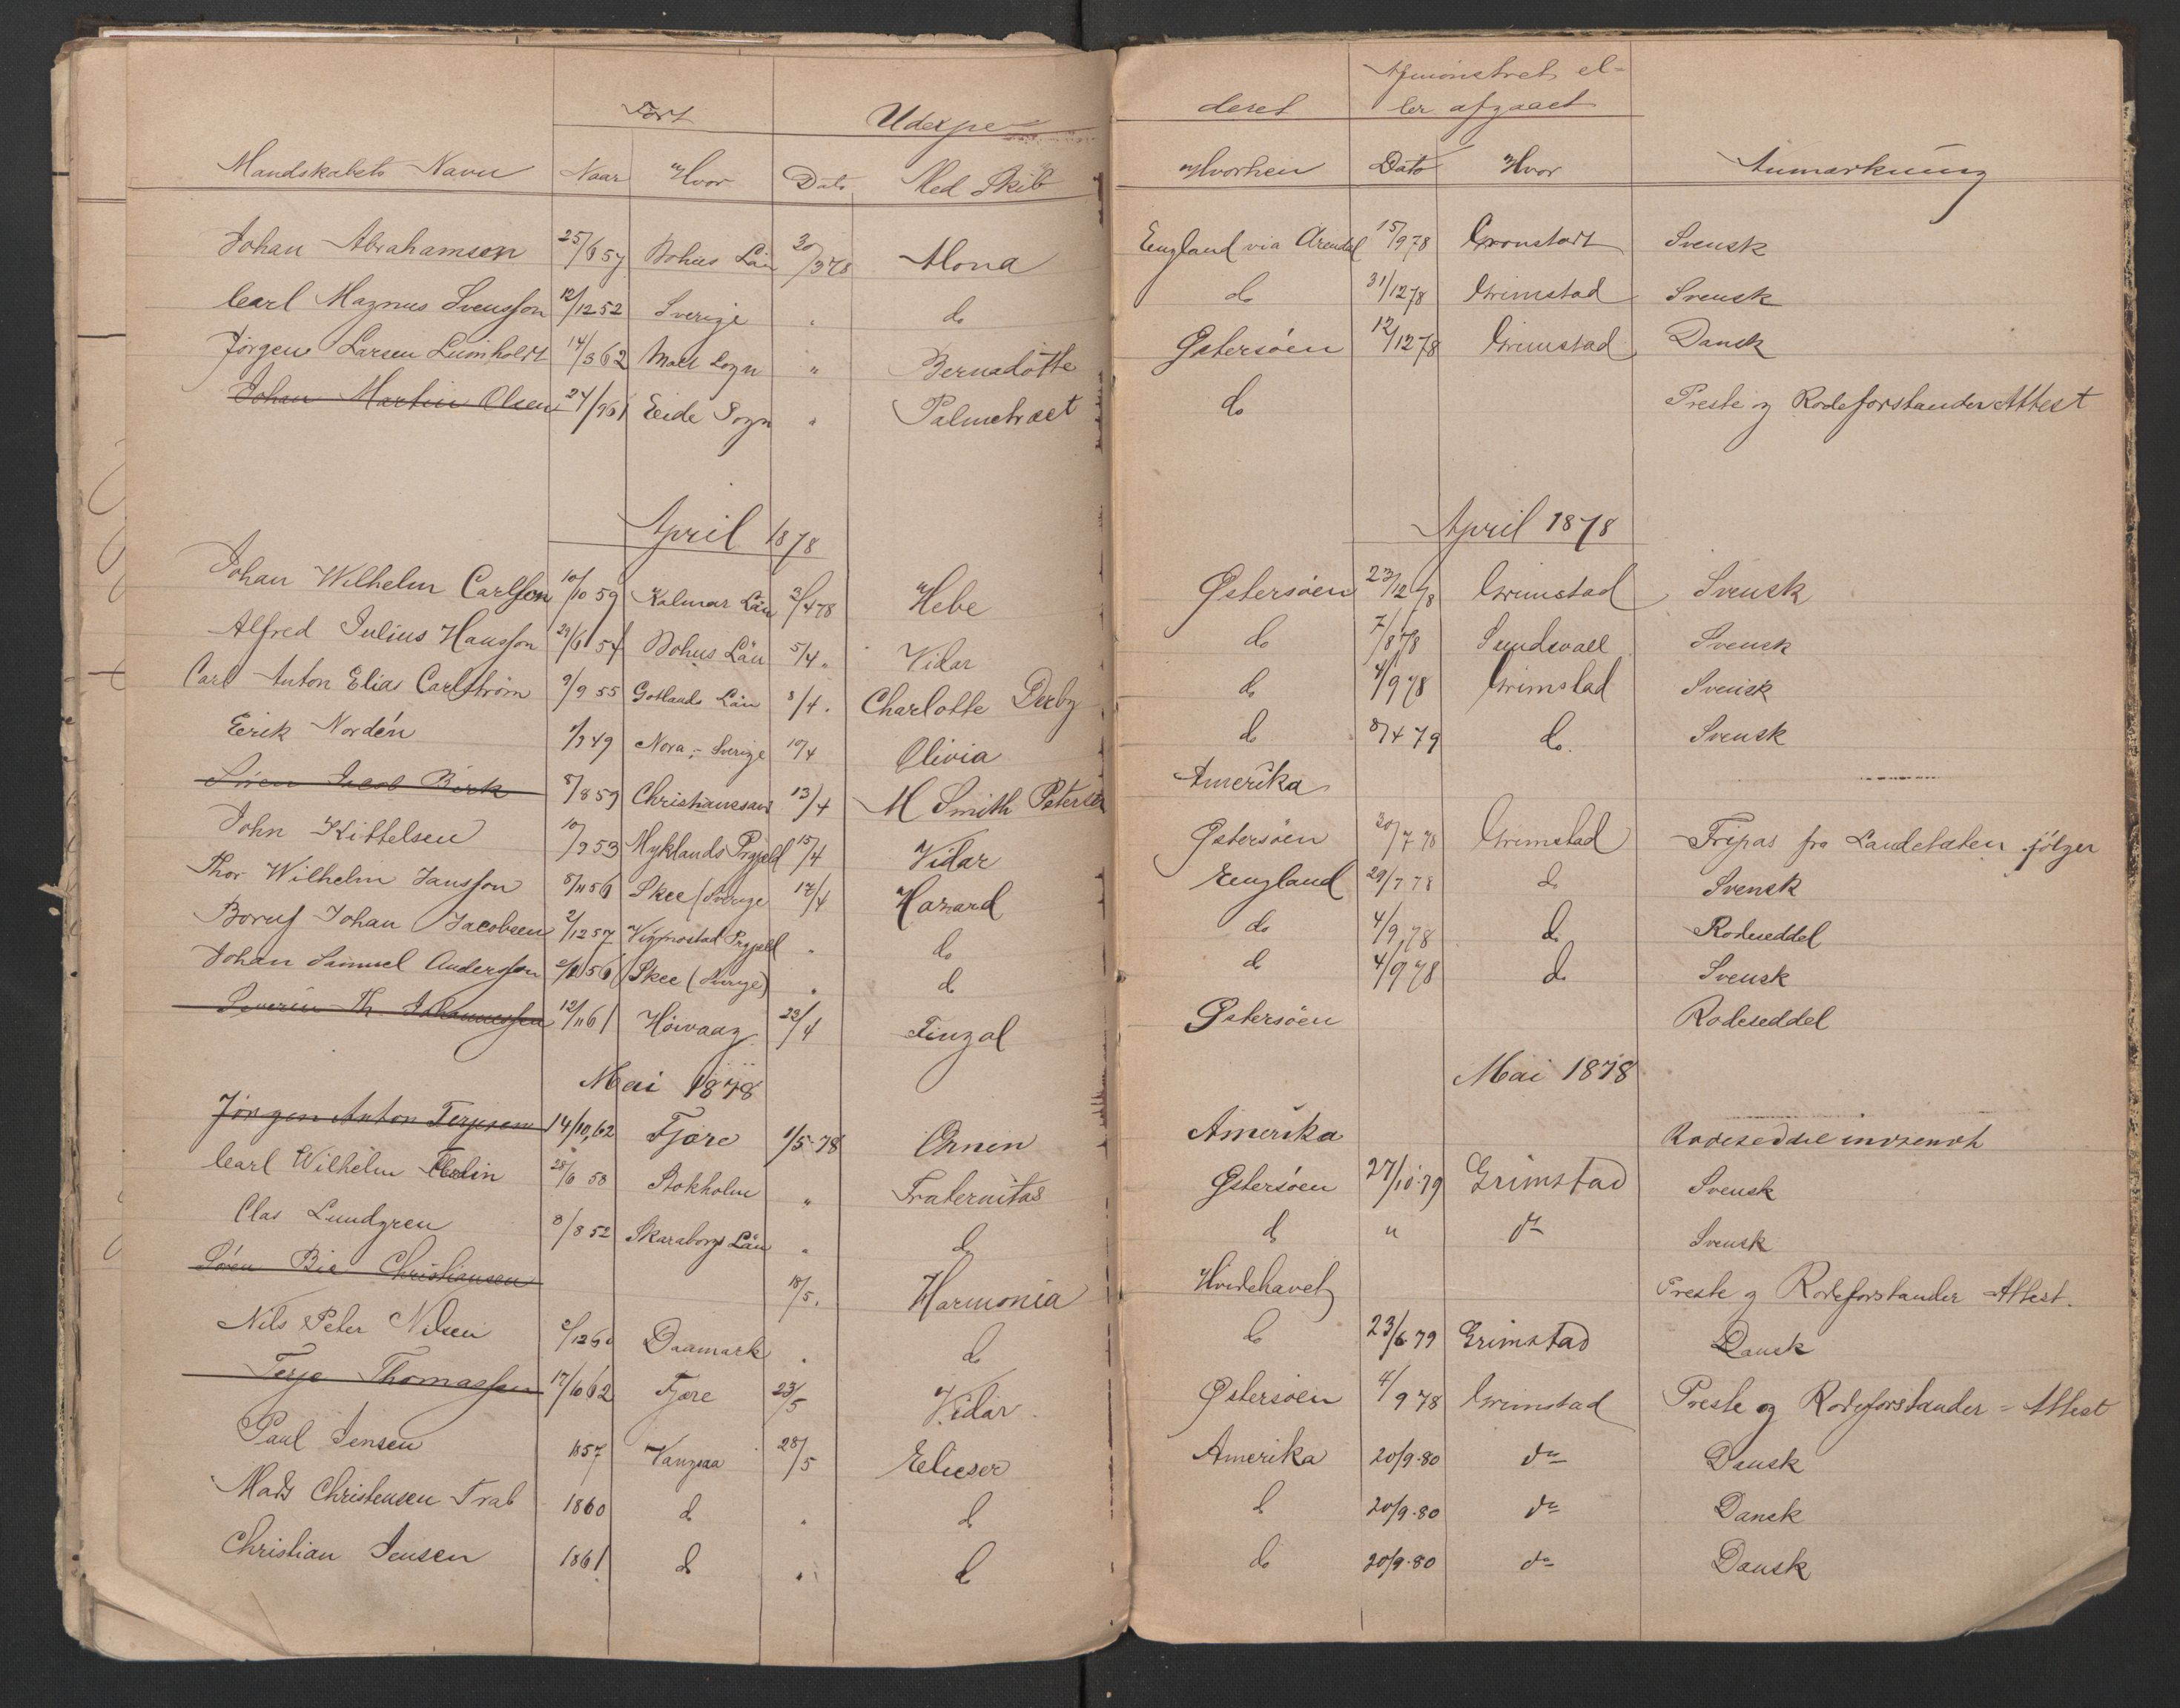 Født Udexpe- deret Afmønstret el-
ler afgaaet
Mandskabets Navn Naar Hvor Dato Med Skib Hvorhen Dato Hvor Anmærkning
Johan Abrahamsen 25/6 57 Bohus Län 30/3 78 Mona England via Arendal 15/9 78 Cronstadt Svensk
Carl Magnus Svensson 12/12 52 Sverige " do do 31/12 78 Grimstad Svensk
Jørgen Larsen Lumholdt 14/3 62 Sogn " Bernadotte Østersøen 12/12 78 Grimstad Dansk
Johan Martin Olsen 24/9 61 Eide Sogn " Palmetræet do Preste og Rodeforstander Attest
April 1878 April 1878
Johan Wilhelm Carlsson 10/10 59 Kalmar Län 2/4 78 Hebe Østersøen 23/12 78 Grimstad Svensk
Alfred Julius Hansson 29/6 54 Bohus Län 5/4 " Vidar do 7/8 78 Sundsvall Svensk
Carl Anton Elias Carlström 9/9 55 Gotlands Län 8/4 " Charlotte Derby do 4/9 78 Grimstad Svensk
Erik Nordén 1/7 49 Nora, - Sverige 10/4 Olivia do 8/4 79 do. Svensk
Søren Jacob Birk 8/8 59 Christianssand 13/4 M Smith Petersen Amerika
John Kittelsen 10/9 53 Myklands Prgjeld 15/4 Vidar Østersøen 30/7 78 Grimstad Fripas fra Landetaten følger
Thor Wilhelm Jansson 8/11 56 Skee (Sverige 17/4 Hazard England 29/7 78 do Svensk
Johan Jacobsen 2/12 57 Vigmostad Prgjeld " do do 4/9 78 do Rodeseddel
Johan Samuel Andersson 56 Skee (Sverige) " do do 4/9 78 do Svensk
Severin Th. Johannessen 12/11 61 Höivaag 23/4 Fingal Østersøen Rodeseddel
Mai 1878 Mai 1878
Jørgen Anton Terjesen 14/10, 62 Fjære 1/5-78 Ornen Amerika Rodeseddel indsendt
Carl Wilhelm 28/6 58 Stokholm " Fraternitas Østersøen 27/10-79 Grimstad Svensk
Clas Lundgren 8/8 52 Skaraborgs Län " do do " do Svensk
Søren Bie Christiansen 18/5. Harmonia Hvidehavet Preste og Rodeforstander Attest.
Nils Peter Nilsen 2/12 60 Danmark " do do 23/6 79 Grimstad Dansk
Terje Thomassen 17/10 62 Fjære 23/5 Vidar Østersøen 4/9 78 Grimstad Preste og Rodeforstander - Attest
Paul Jensen 1857 Vangsaa 28/5 Elieser Amerika 20/9-80 do Dansk
Mads Christensen Trab 1860 do " do do 20/9-80 do Dansk
Christian Jensen 1861 do " do do 20/9-80 do Dansk